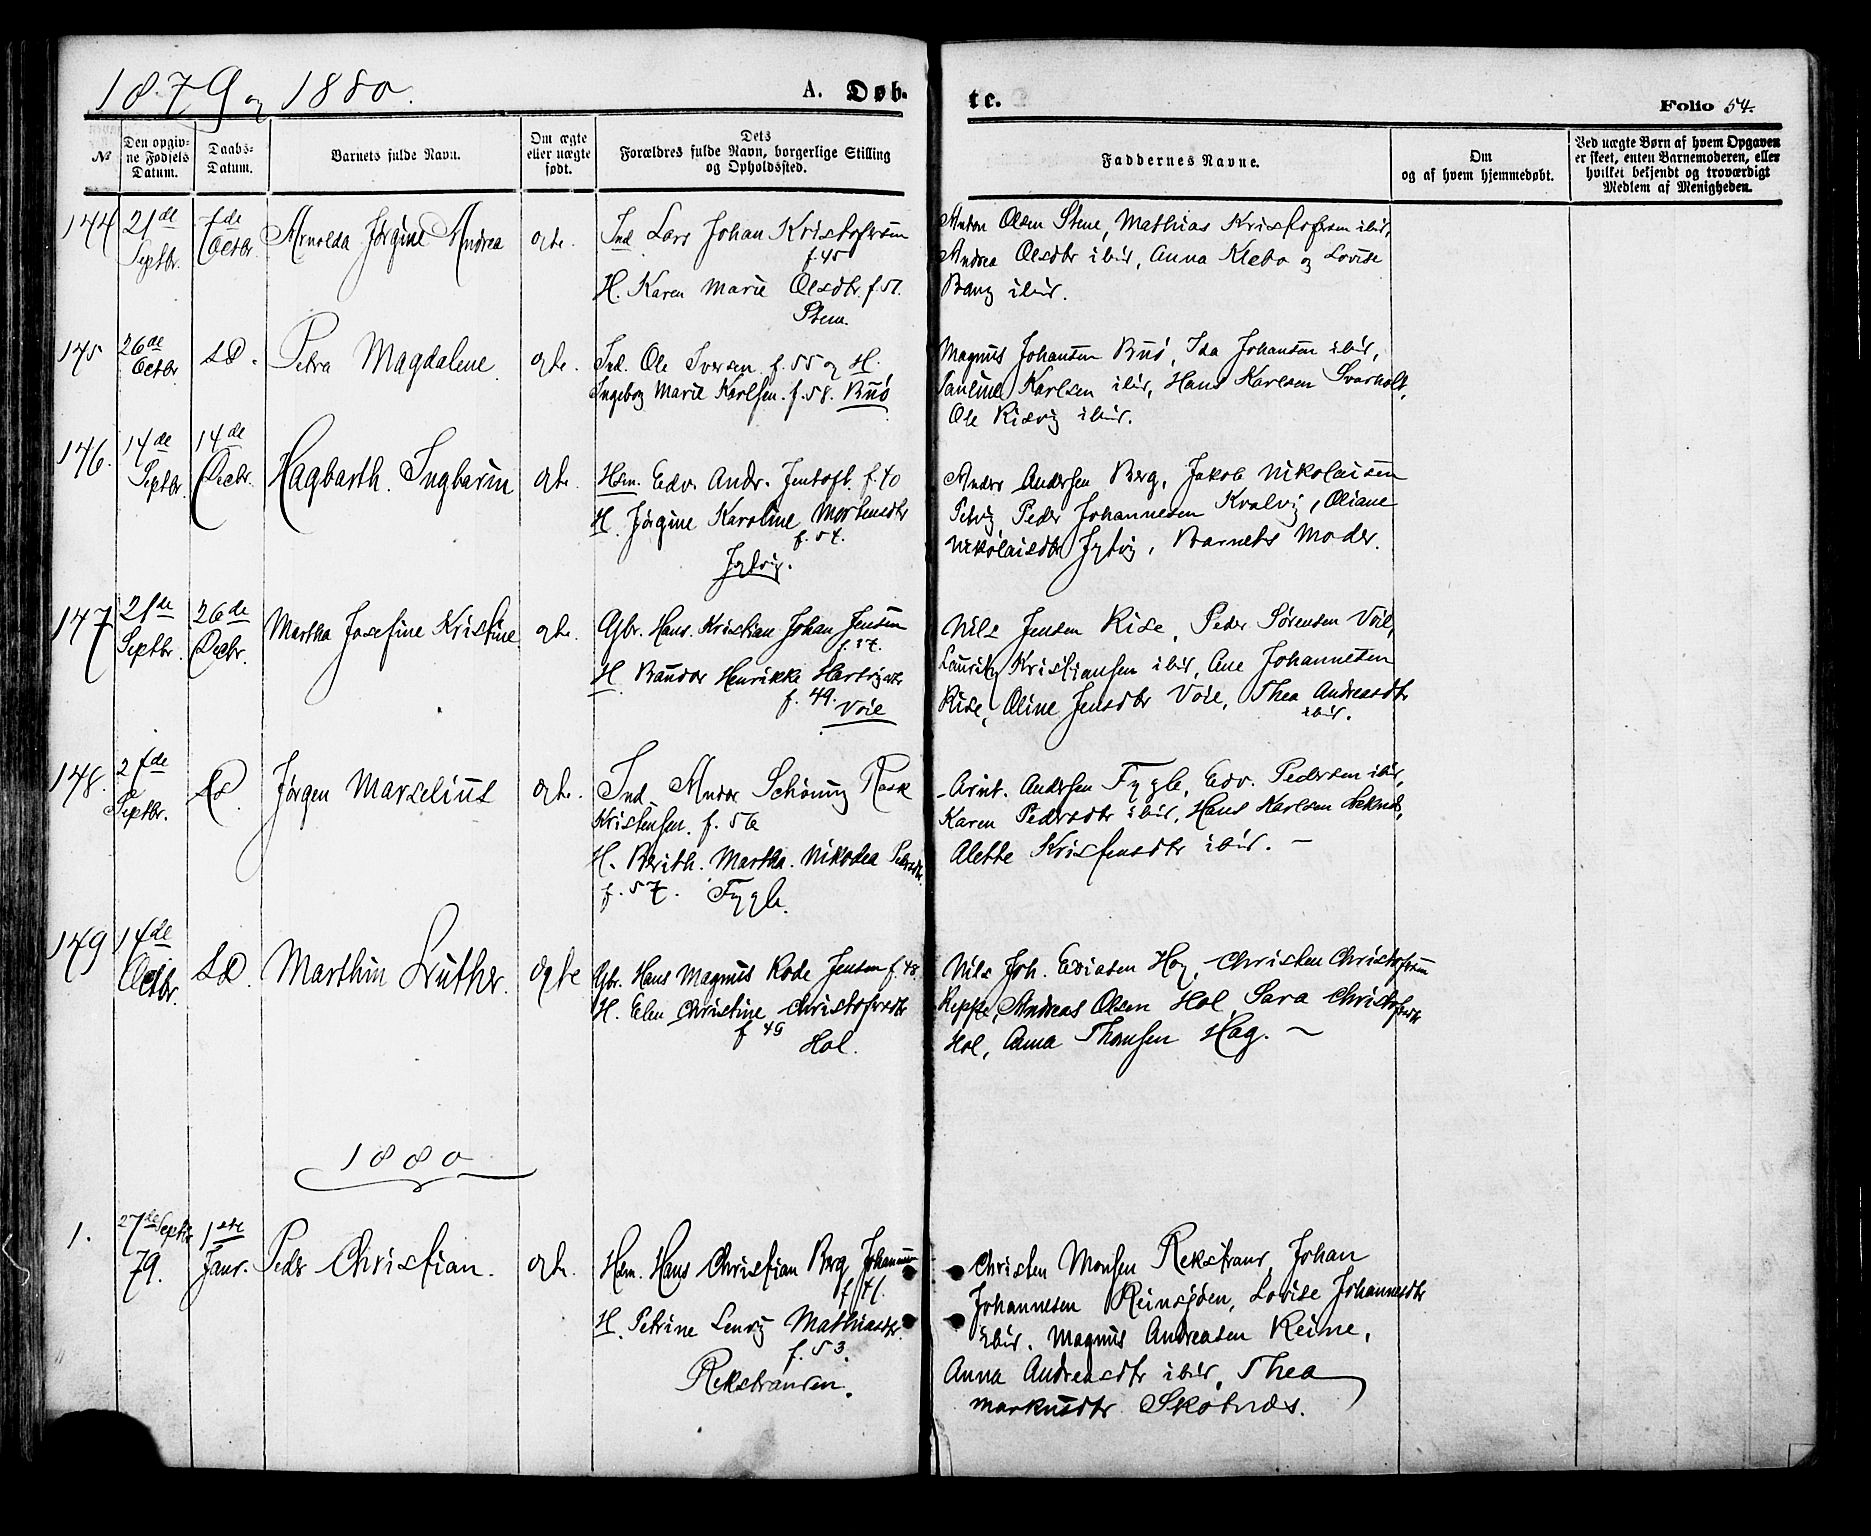 1879 og 1880.
A. Døb-
te.
Folio 54.
№
Den opgiv-
ne Fødsels
Datum.
Daabs-
Datum.
Barnets fulde Navn.
Om ægte
eller uægte
født.
Dets
Forældres fulde Navn, borgerlige Stilling
og Opholdssted.
Faddernes Navne.
Om
og af hvem hjemmedøbt.
Ved uægte Børn af hvem Opgaven
er skeet, enten Barnemoderen, eller
hvilket bekjendt og troværdigt
Medlem af Menigheden.
144
21de
Septbr.
7de
Octbr.
Arnolda Jørgine Andrea
egte.
Ind. Lars Johan Kristofersen
f. 45
H. Karen Marie Olsdtr. f. 51.
Stene.
Anton Olsen Stene, Mathias Kristofersen ibid,
Andrea Olsdtr ibid, Anna Klebo og Lovise
Bang ibid.
145
26de
Octbr.
S.D.
Petra Magdalene
egte.
Ind. Ole Iversen f. 55 og H.
Ingeborg Marie Karlsen. f. 58. Buø
Magnus Johansen Buø, Ida Johansen ibid,
Pauline Karlsen ibid, Hans Karlsen Svarholt,
Ole Risvig ibid.
146.
14de
Septbr.
14de
Decbr.
Hagbarth. Ingbarun
egte.
Hsm. Edv. Andr. Jentoft. f. 40
H. Jørgine Karoline Mortensdtr
f. 54.
Jytvig.
Anders Andersen Berg, Jakob Nikolaisen
Petvig Peder Johannesen Kvalvig, Oliane
Nikolaisdtr Jytvig, Barnets Moder.
147
21de
Septbr.
26de
Decbr.
Martha Josefine Kristine
egte.
Gbr. Hans. Kristian Johan Jensen
f. 37.
H. Baudor Henrikke Hartvigsdtr
f. 49. Voie
Nils Jensen Rise, Peder Sørensen Voie,
Lauritz Kristiansen ibid, Ane Johannesen
Rise, Oline Jensdtr Voie, Thea Andreasdtr
ibid.
148.
27de
Septbr.
S.D.
Jørgen Marselius
egte.
Ind. Andor Schöning Rask
Kristensen. f. 56
H. Berith. Martha. Nikodea Pedersdtr.
f. 57. Fygle.
Arnt. Andersen Fygle, Edv. Pedersen ibid,
Karen Pedersdtr ibid, Hans Karlsen
Alette Kristensdtr ibid. —
149
14de
Octbr.
S.D.
Marthin Luther.
egte
Gbr. Hans Magnus Rode Jensen f. 48.
H. Elen Christine Christofersdtr
f 49
Hol.
Nils Joh. Eviasen Hag, Christen Christofersen
Reppe, Andreas Olsen Hol, Sara Christofersdtr
Hol, Anna Thomsen Hag. —
1880
1.
27de Septbr
79.
1ste
Janr.
Peder Christian.
egte.
Hsm. Hans Christian Berg Johannesen
f. 41.
H. Petrine Lenvig Mathiasdtr.
f. 53.
Rekstranden.
Christen Monsen Rekstrand, Johan
Johannesen Reinsjøen, Lovise Johannesdtr
ibid. Magnus Andreasen Reine,
Anna Andreasdtr ibid, Thea
Markusdtr Skotnæs.